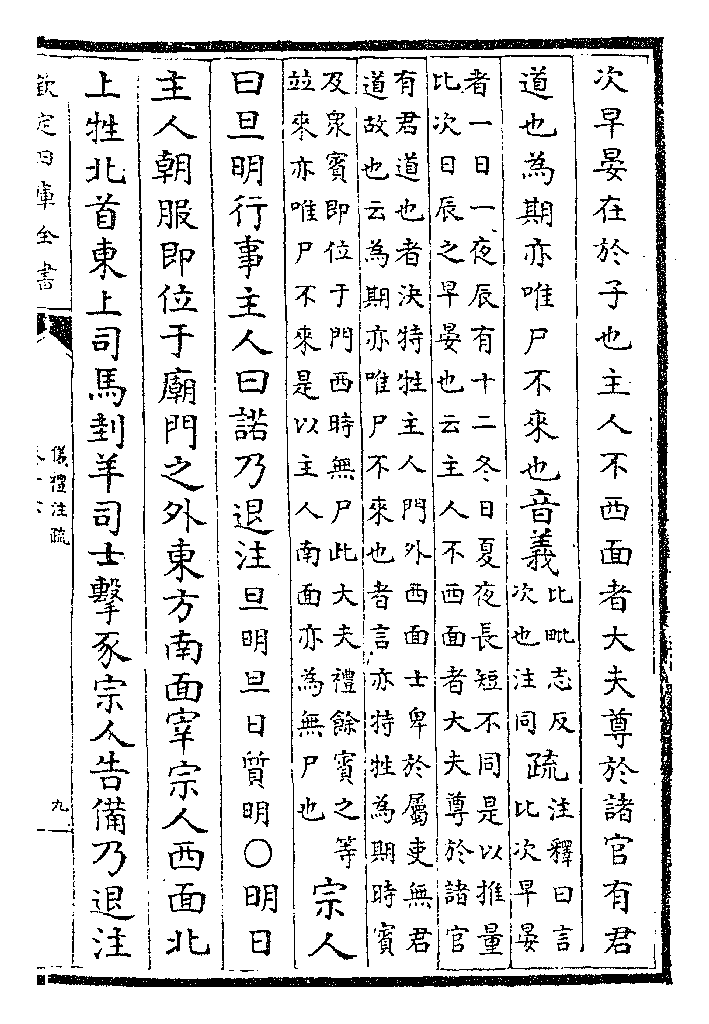 次早晏在於子也主人不西面者大夫尊於諸官有君
道也為期亦唯尸不來也音義
比毗志反
次也注同
疏
注釋曰言
比次早晏
者一日一夜辰有十二冬日夏夜長短不同是以推量
比次日辰之早晏也云主人不西面者大夫尊於諸官
有君道也者決特牲主人門外西面士卑於屬吏無君
道故也云為期亦唯尸不來也者言亦特牲為期時賓
及衆賓即位于門西時無尸此大夫禮餘賓之等
並來亦唯尸不來是以主人南面亦為無尸也
宗人
曰旦明行事主人曰諾乃退注旦明旦日質明〇明日
主人朝服即位于廟門之外東方南面宰宗人西面北
上牲北首東上司馬刲羊司士擊豕宗人告備乃退注
欽定四庫全書
儀禮注疏
九